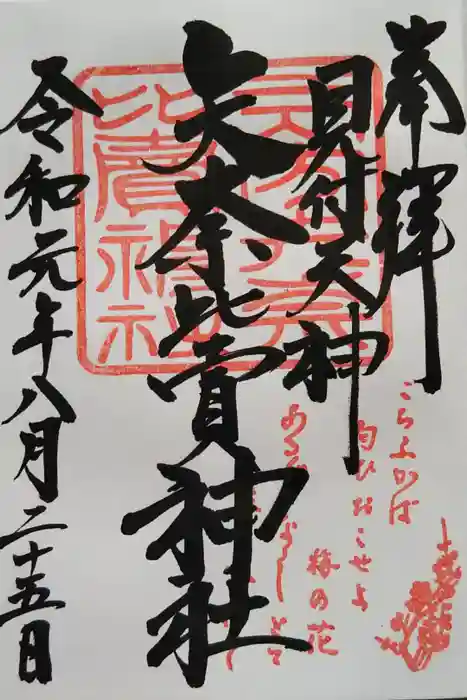 奉拝
見付天神
矢奈比賣神社
令和元年八月二十五日
こちふかば
匂ひおこせよ
梅の花
あるじなしとて